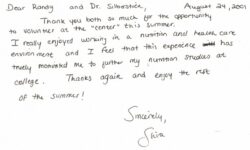 Dear Randy and Dr. Silverstein, August 24, 2001
Thank you both so much for the opportunity
to volunteer at the "center" this summer.
I really enjoyed working in a nutrition and health care
environment and I feel that this experience has
truely motivated me to further my nutrition studies at
college. Thanks again and enjoy the rest
of the summer!
Sincerely,